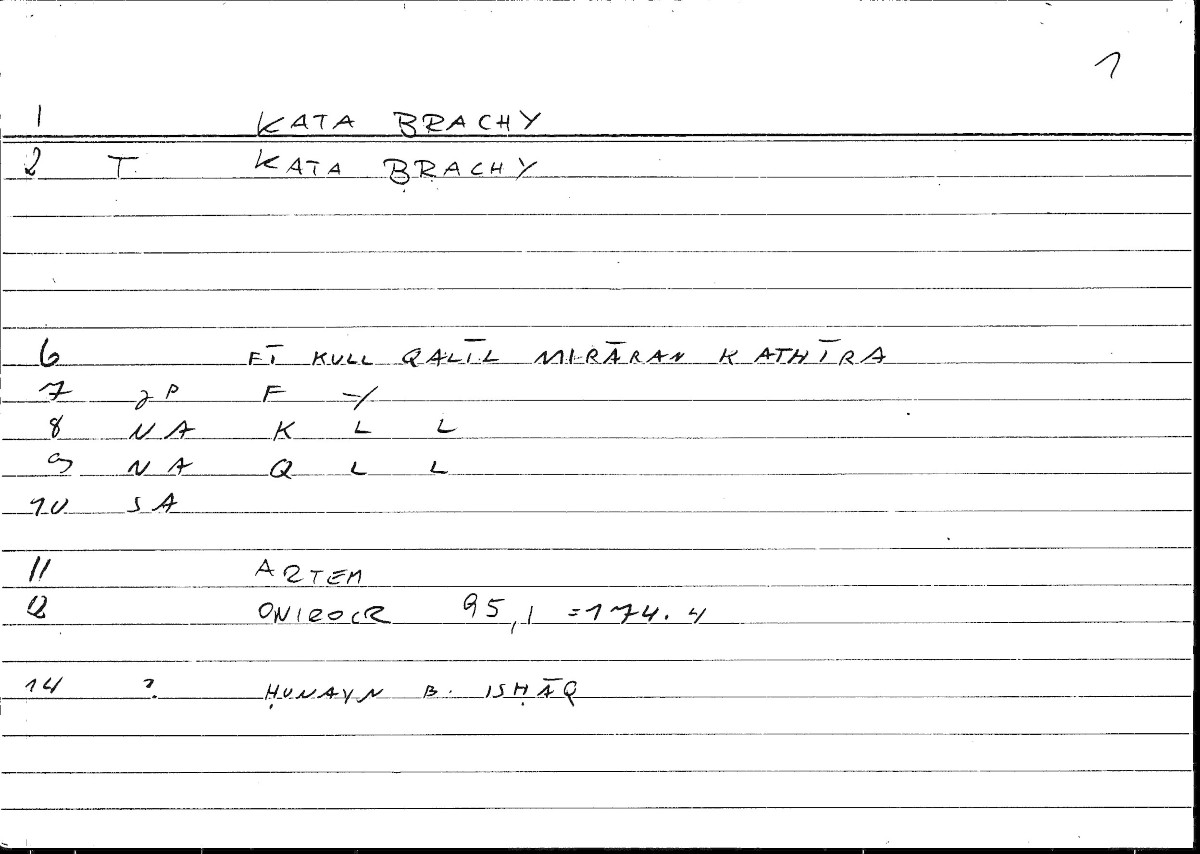 1
1 KATA BRACHY
2 T. KATA BRACHY
6 FĪ KULL QALĪL MIRĀRAN KATHĪRA
7 2P F -/
8 NA K L L
9 NA Q L L
10 SA
11 ARTEM
12 ONIROCR 95,1 =174.4
14 ? ḤUNAYN B. ISḤĀQ